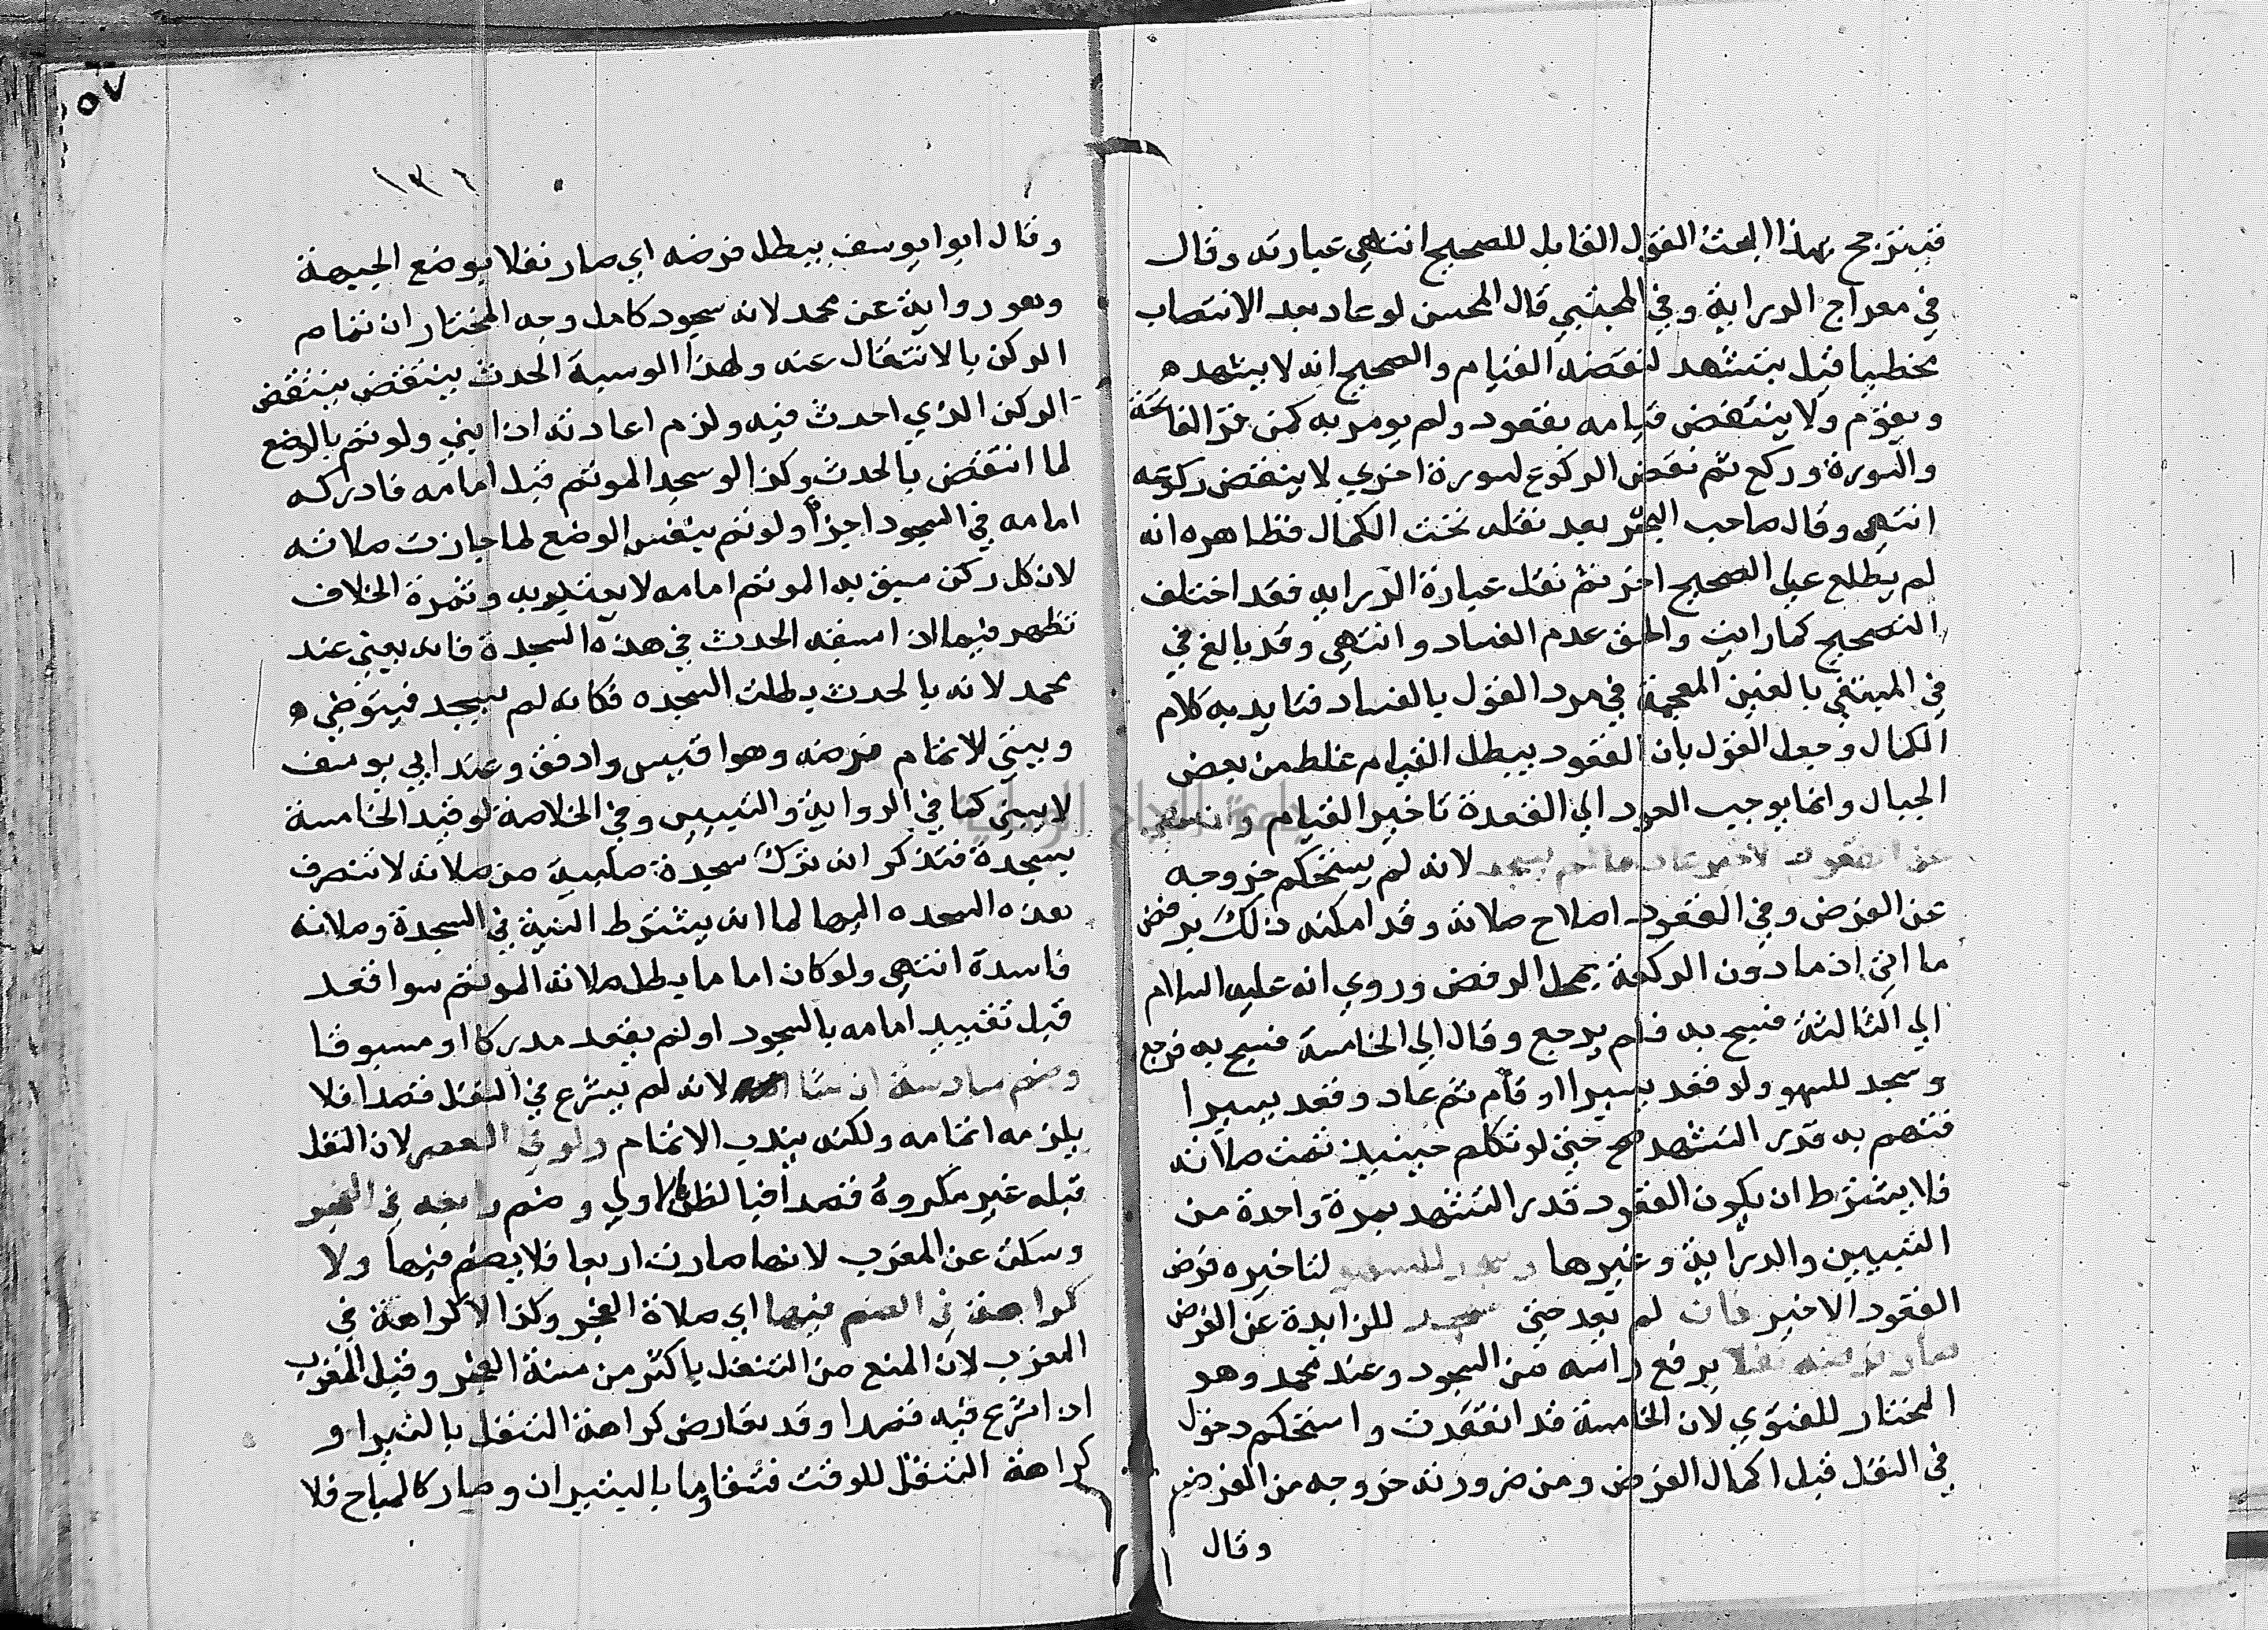 فيترجح بهذا البحث القول القايل للصحيح انتهى عبارته وقال
في معراج الدراية وفي المجتبي قال المحسن لو عاد بعد الانتصاب
مخطيا قيل يتشهد لنقضه القيام والصحيح انه لا يتشهد ه
ويقوم ولا ينتقض قيامه بقعود ولم يومر به كمن قرا الفاتحة
والسورة وركع ثم نقض الركوع لسورة اخري لا ينقض ركوعه
انتهى وقال صاحب البحر بعد نقله بحث الكمال فظاهره انه
لم يطلع علي الصحيح اخر ثم نقل عبارة الدرايه فقد اختلف
التصحيح كما رايت والحق عدم الفساد وانتهى وقد بالغ في
في المبتغي بالغين المعجمة في مرد القول بالفساد فتايد به كلام
الكمال وجعل القول بان القعود يبطل القيام غلط من بعض
الجبال وانما يوجب العود الي القعدة تاخير القيام وان سهى
عن القعود الاخير عاد ما لم يسجد لانه لم يستحكم خروجه
عن الفرض وفي القعود اصلاح صلاته وقد امكنه ذلك برفض
ما اتى اذ ما دون الركعة بمحل الرفض وروي انه عليه السلام
الي الثالثة فسبح به فلم يرجع وقال الي الخامسة فسبح به فرجع
وسجد للسهو ولو قعد يسيرا او قام ثم عاد وقعد يسيرا
فتم به قدر التشهد صح حتى لو تكلم حينيذ تمت صلاته
فلا يشترط ان يكون القعود قدر التشهد بمرة واحدة من
التبيين والدراية وغيرها وسجد للسهو لتاخيره فرض
القعود الاخير فان لم يعد حتى سجد للزايدة عن الفرض
صار فرضه نفلا برفع راسه من السجود وعند محمد وهو
المختار للفتوي لان الخامسة قد انعقدت واستحكم دخول
في النفل قبل اكمال الفرض ومن ضرورته خروجه من الفرض
وقال
٥٧
١٣٦
وقال ابوا يوسف يبطل فرضه اي صار نفلا بوضع الجبهة
وهو رواية عن محمد لانه سجود كامل وجه المختار ان تمام
الركن بالانتقال عنه ولهذا لو سبقه الحدث ينتقض ينتقض
الركن الذي احدث فيه ولزم اعادته اذا بني ولو تم بالوضع
لما انتقض بالحدث وكذا لو سجد الموتم قبل امامه فادركه
امامه في السجود اجزأ ولو تم بنفس الوضع لما جازت صلاته
لان كل ركن سبق به الموتم امامه لا يعتد به وثمرة الخلاف
تظهر فيما اذا سبقه الحدث في هذه السجدة فانه يبني عند
محمد لانه بالحدث بطلت السجده فكانه لم يسجد فيتوضي ه
ويبني لاتمام فرضه وهو اقيس وارفق وعند ابي يوسف
لا يبني كما في الرواية والتبيين وفي الخلاصة لو قيد الخامسة
بسجدة فتذكر انه ترك سجدة صلبية من صلاته لا تنصرف
هذه السجده اليها لما انه يشترط النية في السجدة وصلاته
فاسدة انتهى ولو كان اماما بطل صلاة الموتم سوا قعد
قبل تقييد امامه بالسجود او لم يقعد مدركا او مسبوقا
وضم سادسة ان شا لانه لم يشرع في النفل قصدا فلا
يلزمه اتمامه ولكنه يندب الاتمام ولو في العصر لان النفل
قبله غير مكروه قصدا فبالظن اولي وضم رابعه في الفجر
وسكت عن المغرب لانها صارت اربعا فلا يضم فيها ولا
كراهة في الضم فيها اي صلاة الفجر وكذا لا كراهة في
المغرب لان المنع من التنفل باكثر من سنة الفجر وقبل المغرب
اذا شرع فيه قصدا وقد تعارض كراهة التنفل بالتبرا و
كراهة التنفل للوقت فتقاوما بالتبيران وصار كالمباح فلا